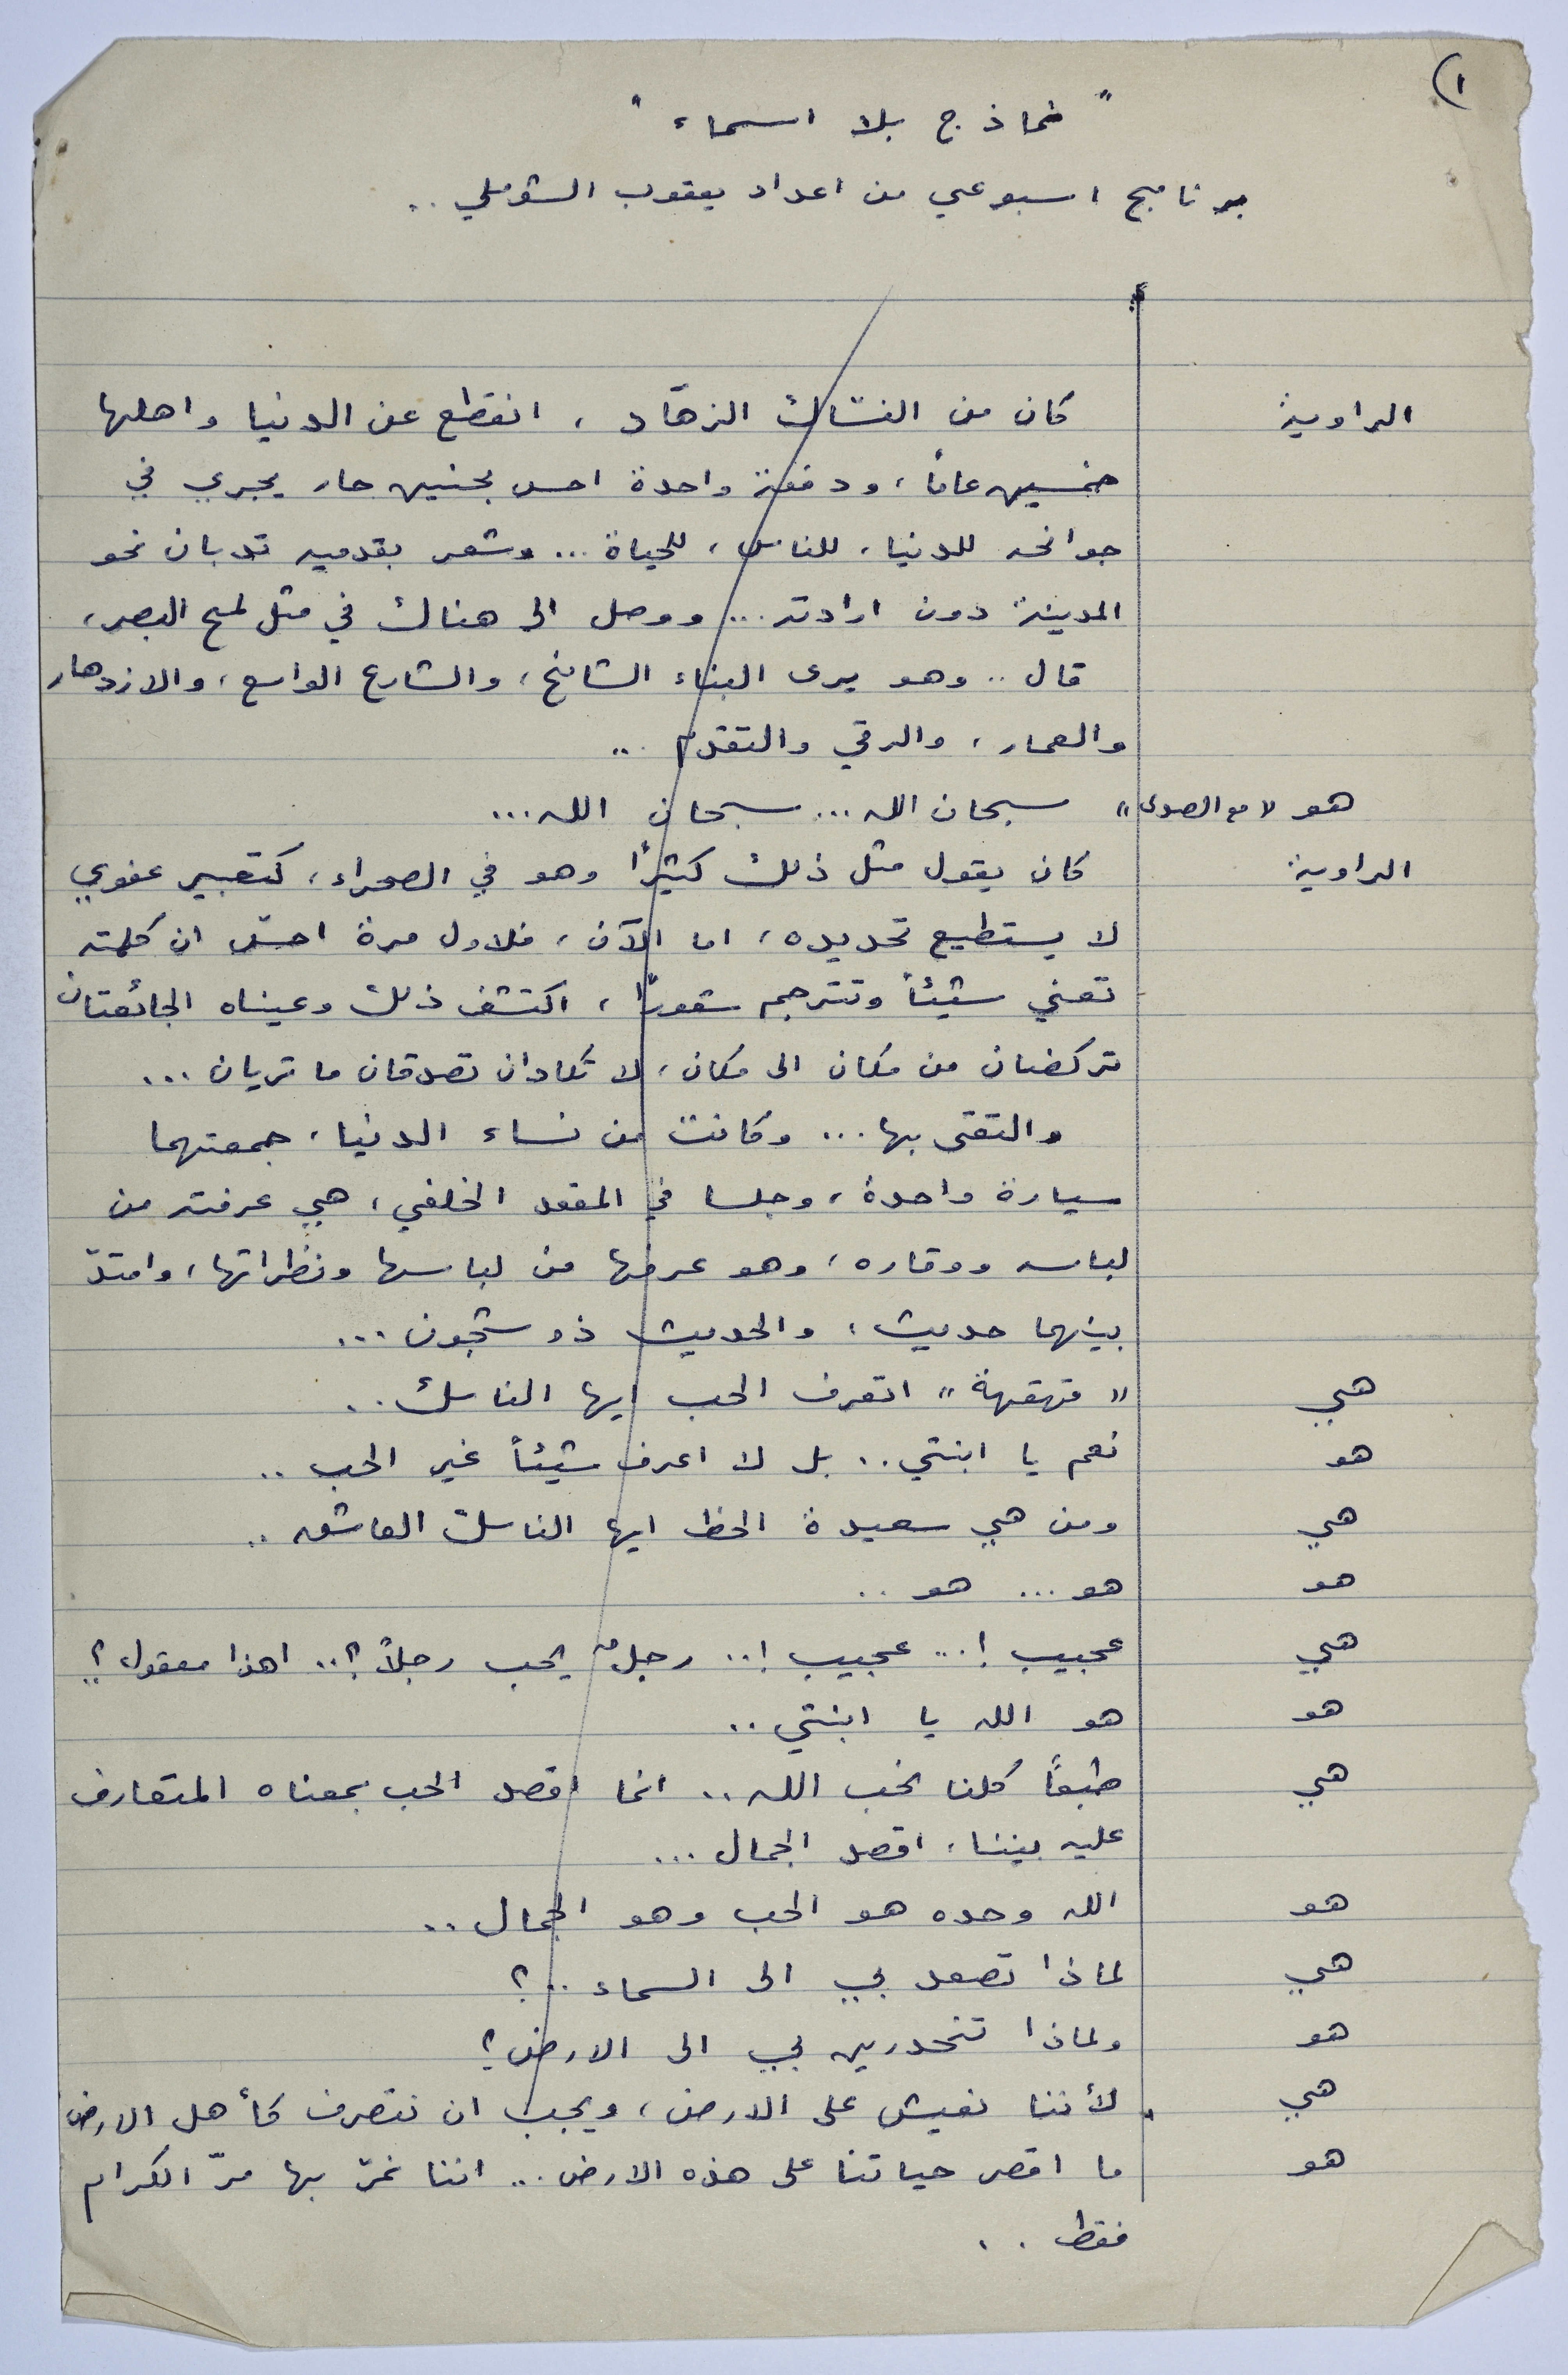 ١)
" نماذج بلا اسماء "
برنامج اسبوعي من اعداد يعقوب الشوملي ..
الراوية كان من النسّاك الزهّاد ، انقطع عن الدنيا واهلها
خمسين عاماً ، ودفعة واحدة احس بحنين حار يجري في
جوانحه للدنيا ، للناس ، للحياة ... وشعر بقدميه تدبان نحو
المدينة دون ارادته ... ووصل الى هناك في مثل لمح البصر ،
قال .. وهو يرى البناء الشامخ ، والشارع الواسع ، والازدهار
والعمار ، والرقي والتقدم ...
هو " مع الصدى " سبحان الله ... سبحان الله ...
الراوية كان يقول مثل ذلك كثيرًا وهو في الصحراء ، كتعبير عفوي
لا يستطيع تحديده ، اما الآن ، فلاول مرة احسّ ان كلمته
تعني شيئاً وتترجم شعورًا ، اكتشف ذلك وعيناه الجائعتان
تركضان من مكان الى مكان ، لا تكادان تصدقان ما تريان ...
والتقى بها ... وكانت من نساء الدنيا ، جمعتهما
سيارة واحدة ، وجلسا في المقعد الخلفي ، هي عرفته من
لباسه ووقاره ، وهو عرفها من لباسها ونظراتها ، وامتدّ
بينهما حديث ، والحديث ذو شجون ...
هي " قهقهة " اتعرف الحب ايها الناسك ..
هو نعم يا ابنتي .. بل لا اعرف شيئاً غير الحب ..
هي ومن هي سعيدة الحظ ايها الناسك العاشق ..
هو هو ... هو ..
هي عجيب ! .. عجيب ! .. رجلٌ يحب رجلاً ؟ .. اهذا معقول ؟
هو هو الله يا ابنتي ..
هي طبعاً كلنا نحب الله .. انما اقصد الحب بمعناه المتعارف
عليه بيننا ، اقصد الجمال ...
هو الله وحده هو الحب وهو الجمال ..
هي لماذا تصعد بي الى السماء .. ؟
هو ولماذا تنحدرين بي الى الارض ؟
هي لأننا نعيش على الارض ، ويجب ان نتصرف كأهل الارض .
هو ما اقصر حياتنا على هذه الارض ... اننا نمرّ بها مرّ الكرام
فقط ..